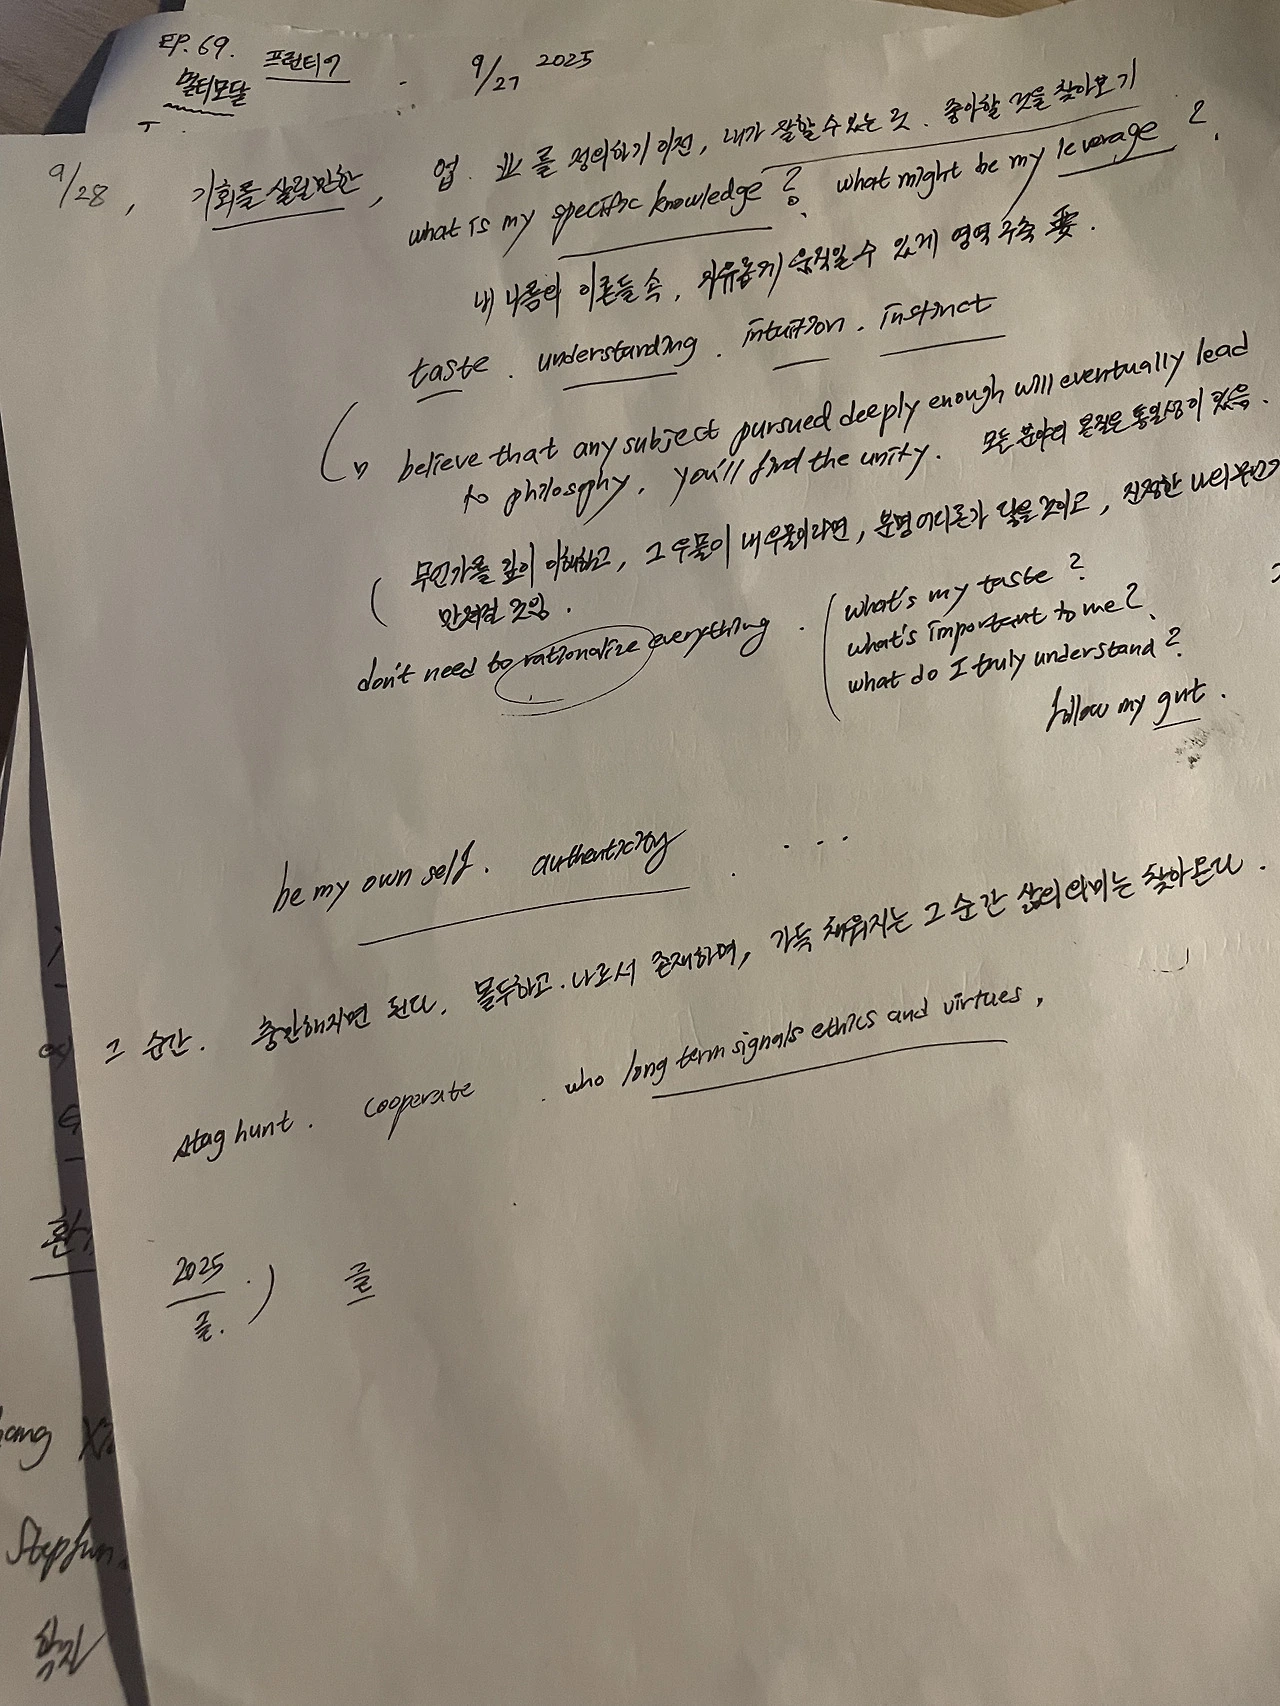 EP. 69. 프런티어 9/27 2025
멀티모달
9/28, 기회를 살릴만한, 업. 业를 정의하기 이전, 내가 잘할 수 있는 것. 좋아할 것을 찾아보기
what is my specific knowledge? what might be my leverage?
내 나름의 이론들 속, 자유롭게 움직일 수 있게 영역 구축 要.
taste. understanding. intuition. instinct
believe that any subject pursued deeply enough will eventually lead
to philosophy, you'll find the unity. 모든 분야의 본질은 통일성이 있음.
무언가를 깊이 이해하고, 그 우물이 내 우물이라면, 분명 어디론가 닿을 것이고, 진정한 나의 무언가
만져질 것임.
don't need to rationalize everything.
what's my taste?
what's important to me?
what do I truly understand?
follow my gut.
be my own self. authenticity. ...
그 순간. 충만해지면 된다. 몰두하고. 나로서 존재하며, 가득 채워지는 그 순간 삶의 의미는 찾아온다.
stag hunt. cooperate. who long term signals ethics and virtues,
2025
글.
글
환
Stepfun